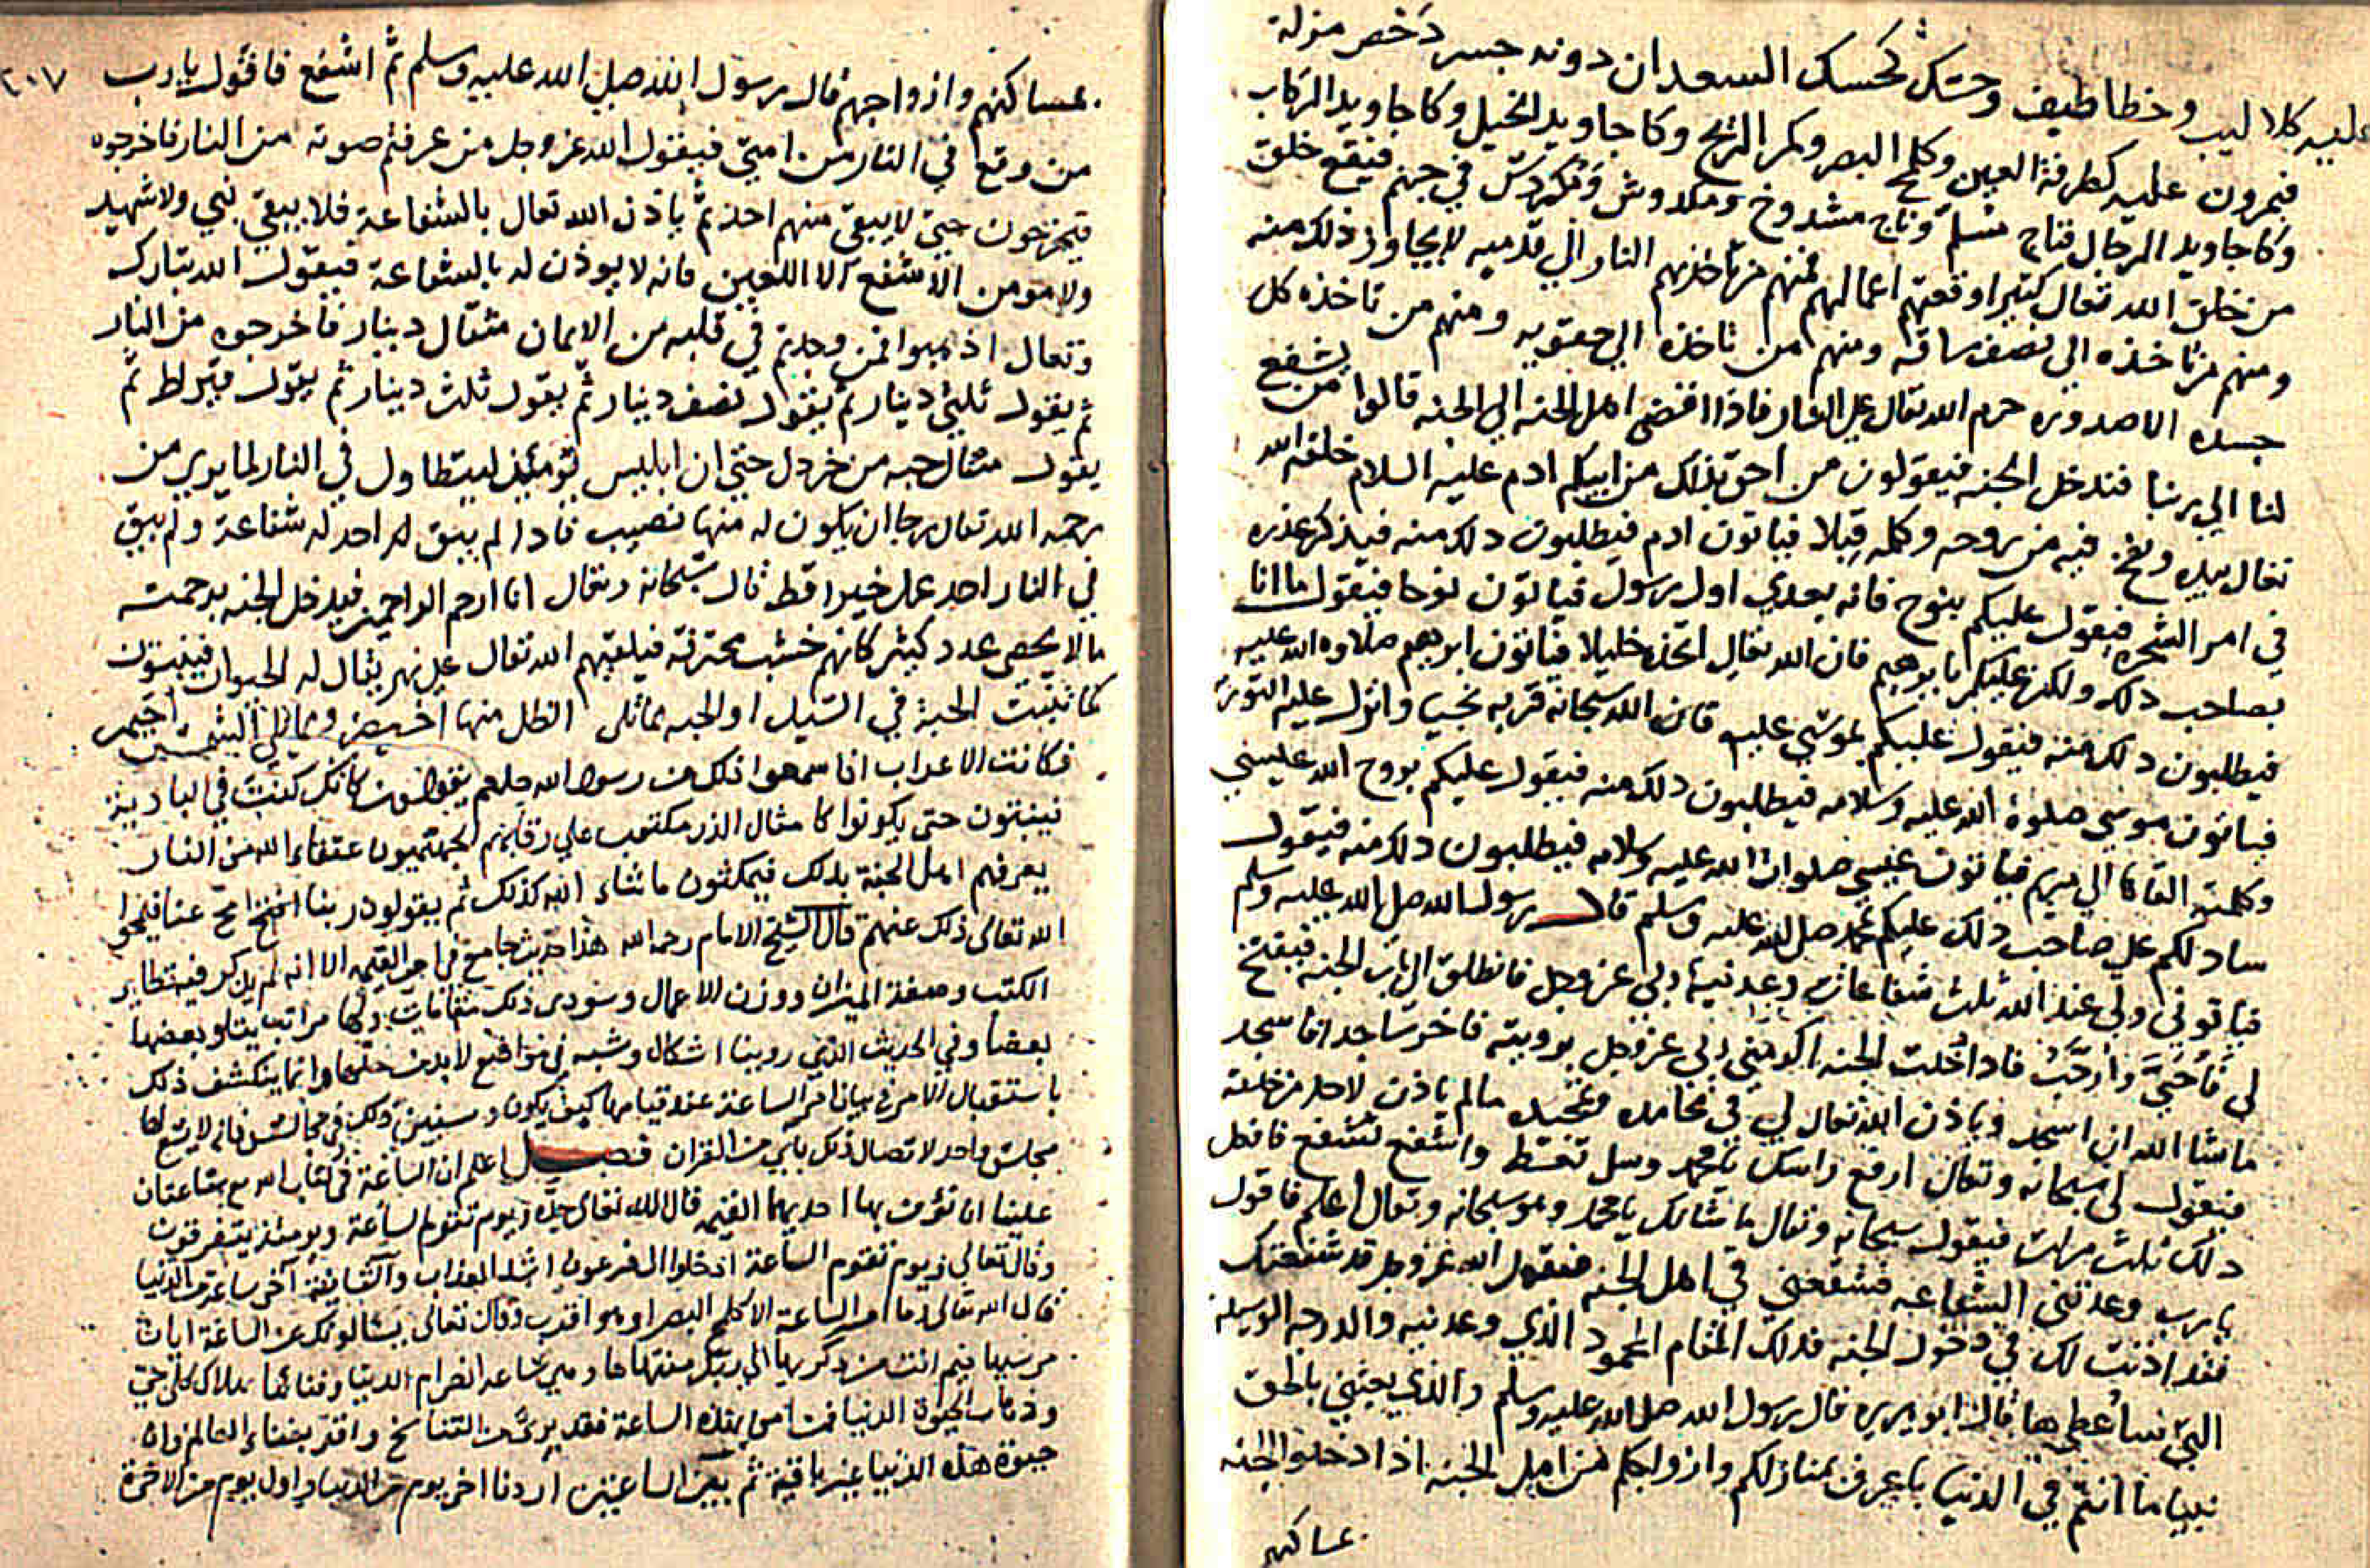 عليه كلاليب وخطاطيف وحسك كحسك السعدان دونه جسر دخص مزلة
فيمرون عليه كطرفة العين وكلمح البصر وكمر الريح وكاجاويد الخيل وكاجاويد الركاب
وكاجاويد الرجال فناج مسلم وناج مشدوخ ومكدوش في جهنم فيقع خلق
من خلق الله تعالى كثير اوقعتهم اعمالهم فمنهم من تاخذهم النار الي قدميه لا يجاوز ذلك منه
ومنهم من تاخذه الي نصف ساقه ومنهم من تاخذه الي حقويه ومنهم من تاخذه كل
جسده الا صدوره حرم الله تعالى علي النار فاذا افضى اهل الجنه الي الجنه قالوا من يشفع
لنا الي ربنا فندخل الجنه فيقولون من احق بذلك من ابيكم ادم عليه السلام خلقه الله
تعالى بيده ونفخ فيه من روحه وكلمه قبلا فياتون ادم فيطلبون ذلك منه فيذكر عذره
في امر الشجره فيقول عليكم بنوح فانه بعدي اول رسول فياتون نوحا فيقول ما انا
بصاحب ذلك ولكن عليكم بابرهيم فان الله تعالى اتخذه خليلا فياتون ابرهيم صلاوه الله عليه
فيطلبون ذلك منه فيقول عليكم بموسي عليه فان الله سبحانه قربه نجيا وانزل عليه التورىة
فياتون موسي صلوة الله عليه وسلامه فيطلبون ذلك منه فيقول عليكم بروح الله عيسي
وكلمته القاها الي مريم فياتون عيسي صلوات الله عليه وسلامه فيطلبون ذلك منه فيقول
سادلكم علي صاحب ذلك عليكم محمد صلى الله عليه وسلم قال رسول الله صلى الله عليه وسلم
فياتوني ولي عند الله ثلث شفاعات وعدنيها ربي عز وجل فانطلق الي باب الجنه فيفتح
لي فاحيي وارحب فاذا دخلت الجنه اكرمني ربي عز وجل برويته فاخر ساجدا فاسجد
ماشا الله ان اسجد وياذن الله تعالى لي في محامده وتمجيده مالم ياذن لاحد من خلقه
فيقول لي سبحانه وتعالى ارفع راسك يا محمد وسل تعط واشفع تشفع فافعل
ذلك ثلث مرات فيقول سبحانه وتعالى ما شانك يا محمد وهو سبحانه وتعالى اعلم فاقول
يا رب وعدتني الشفاعه فشفعني في اهل الجنه فيقول الله عز وجل قد شفعتك
فقد اذنت لك في دخول الجنه فذلك المقام المحمود الذي وعدنيه والدرجه الوسيله
التي ساعطيها قال ابو هريره قال رسول الله صلى الله عليه وسلم والذي بعثني بالحق
نبيا ما انتم في الدنيا باعرف بمنازلكم وازواجكم من اهل الجنه اذا دخلوا الجنه
بمساكنهم
٢٠٧
بمساكنهم وازواجهم قال رسول الله صلى الله عليه وسلم ثم اشفع فاقول يا رب
من وقع في النار من امتي فيقول الله عز وجل من عرفتم صوته من النار فاخرجوه
فيخرجون حتي لا يبقى منهم احد ثم ياذن الله تعالى بالشفاعة فلا يبقي نبي ولا شهيد
ولا مومن الا شفع الا اللعين فانه لا يوذن له بالشفاعة فيقول الله تبارك
وتعالى اذهبوا فمن وجدتم في قلبه من الايمان مثقال دينار فاخرجوه من النار
ثم يقول ثلثي دينار ثم يقول نصف دينار ثم يقول ثلث دينار ثم يقول قيراط ثم
يقول مثقال حبه من خردل حتي ان ابليس يومئذ ليتطاول في النار لما يري من
رحمه الله تعالى رجا ان يكون له منها نصيب فاذا لم يبق لاحد له شفاعة ولم يبق
في النار احد عمل خيرا قط قال سبحانه وتعالى انا ارحم الراحمين فيدخل الجنه برحمته
ما لا يحصى عدد كثير كانهم خشب محترقه فيلقيهم الله تعالى على نهر يقال له الحيوان فينبتون
كما تنبت الحبة في السيل او الحبه مما تلى الظل منها اخيضر ومما تلي الشمس اخيمر
فكانت الاعراب اذا سمعوا ذلك من رسول الله صلعم كانك كنت في البادية
فينبتون حتى يكونوا كامثال الذر مكتوب علي رقابهم الجهنميون عتقاء الله من النار
يعرفهم اهل الجنة بذلك فيمكثون ما شاء الله كذلك ثم يقولون ربنا امح عنا فيمحوا
الله تعالى ذلك عنهم قال الشيخ الامام رحمه الله هذا حديث جامع في امر القيمه الا انه لم يذكر فيه تطاير
الكتب وصفة الميزان ووزن الاعمال وسنورد ذلك مقامات وكها مراتب يتلو بعضها
بعضا وفي الحديث الذي روينا اشكال وشبه في مواضع لابد من حلها وانما ينكشف ذلك
باستقبال الامر في بيان امر الساعة عند قيامها كيف يكون وسنبين ذلك في مجالس فانه لا يتسع لها
مجلس واحد لاتصال ذلك باي من القران فصل اعلم ان الساعة في كتاب الله مع ساعتان
علينا ان نؤمن بها احديهما القيمه قال الله تعالى ويوم تقوم الساعة ويومئذ يتفرقون
وقال تعالى ويوم تقوم الساعة ادخلوا ال فرعون اشد العذاب والثانية آخر ساعة من الدنيا
قال الله تعالى وما امر الساعة الا كلمح البصر او هو اقرب وقال تعالى يسالونك عن الساعة ايان
مرسيها فيم انت من ذكريها الي ربك منتهاها وهي ساعه انصرام الدنيا وفنائها بهلاك كل حي
وذهاب الحيوة الدنيا فمن امن بهذه الساعة فقد برئ من التناسخ واقر بفناء العالم وان
حيوة هذه الدنيا غير باقية ثم بين الساعتين اردنا اخر يوم من الدنيا واول يوم من الاخرة